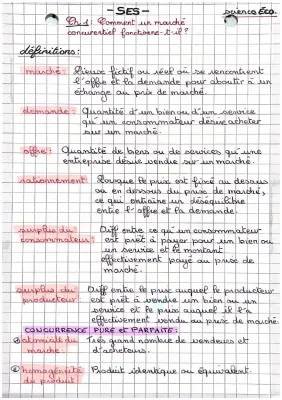 - SES -
Science Éco.
Ch.1: Comment un marché
concurrentiel fonctionne-t-il?
définitions:
marché: Lieux fictif ou réel où se rencontrent
l'offre et la demande pour aboutir à un
échange au prix de marché.
demande: Quantité d'un bien ou d'un service
qu'un consommateur désire acheter
sur un marché.
offre: Quantité de biens ou de services qu'une
entreprise désire vendre sur un marché.
rationnement: Lorsque le prix est fixé au dessus
ou en dessous du prix de marché,
ce qui entraîne un déséquilibre
entre l'offre et la demande.
surplus du consommateur: Diff entre ce qu'un consommateur
est prêt à payer pour un bien ou
un service et le montant
effectivement payé au prix de
marché.
surplus du producteur: Diff entre le prix auquel le producteur
est prêt à vendre un bien ou un
service et le prix auquel il l'a
effectivement vendu au prix de marché.
CONCURRENCE PURE et PARFAITE:
① atomicité du marché: Très grand nombre de vendeurs et
d'acheteurs.
② homogénéité du produit: Produit identique ou équivalent.